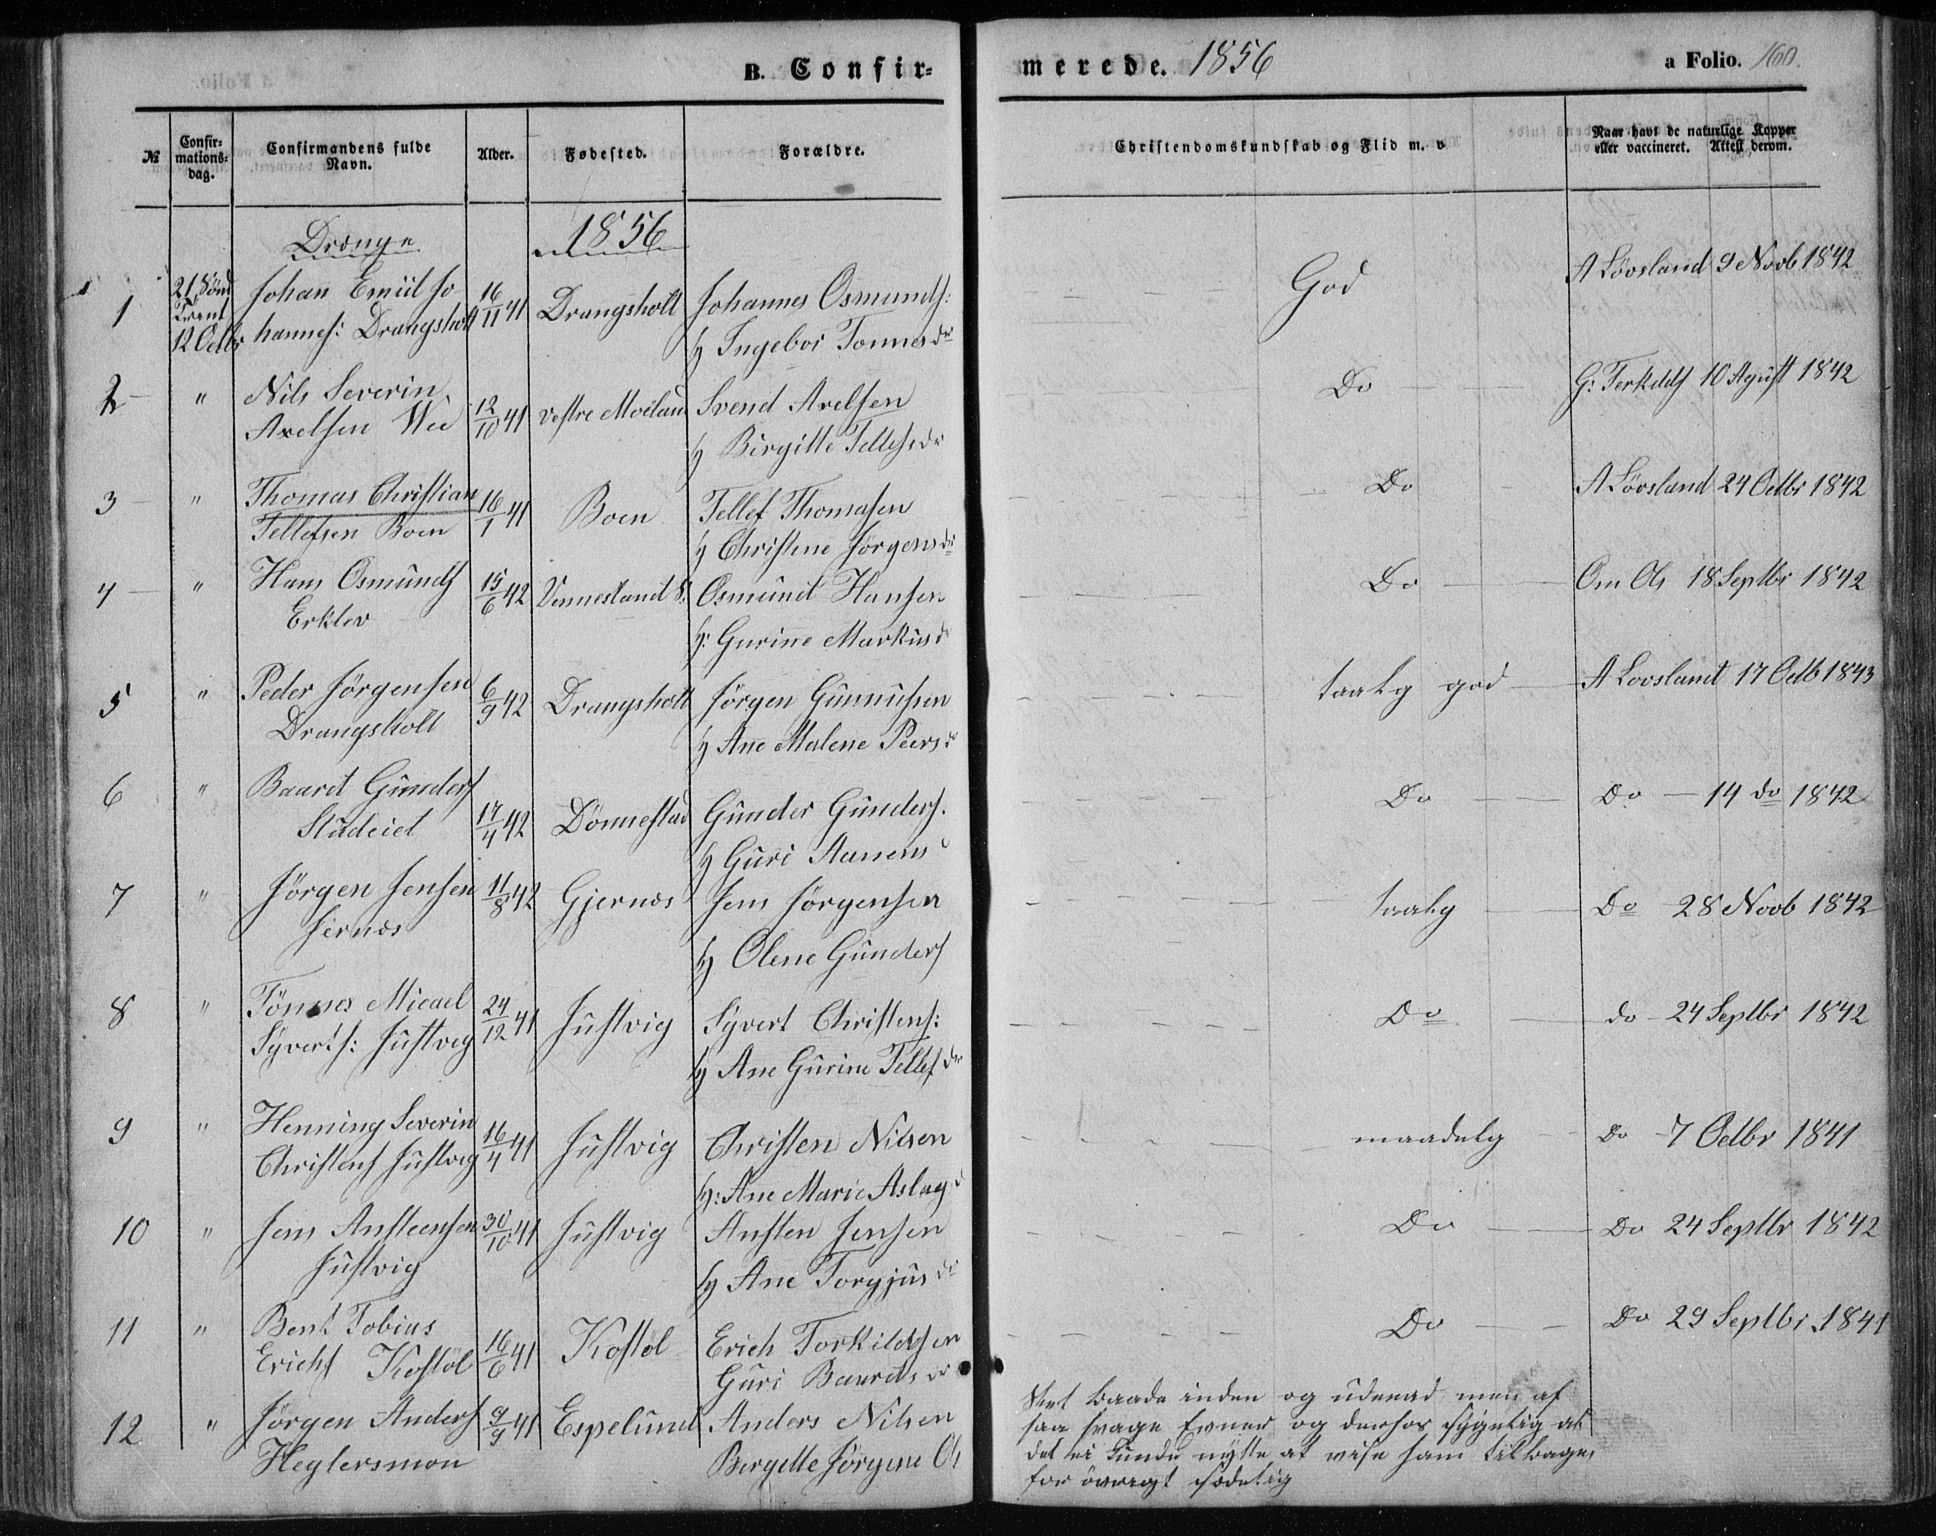 B. Confir-
merede. 1856
a Folio. 160.
№
Confir-
mations-
dag.
Confirmandens fulde
Navn.
Alder.
Fødested.
Forældre.
Christendomskundskab og Flid m. v
Naar havt de naturlige Kopper
eller vaccineret. Attest derom.
Drænge
1856
1
21 Sönd
Trini
12 Octbr
Johan Emiil Jo
hannes: Drangsholt
16/11 41
Drangsholt
Johannes Osmunds:
H Ingebor Tonnesdr
God
A Lövsland 9 Novb 1842
2
"
Nils Severin
Axelsen Wee
12/10 41
vestre Moeland
Svend Axelsen
H Birgitte Tellefsdr
Do
G: Terkelds 10 Agust 1842
3
"
Thomas Christian
Tellefsen Boen
16/1 41
Boen
Tellef Thomasen
H Christene Jörgensdr
Do
A Lövsland 24 Octbr 1842
4
"
Hans Osmunds
Erklev
15/6 42
Vennesland S.
Osmund Hansen
H: Gurine Markusdr
Do
Om Ols 18 Septbr 1842
5
"
Peder Jörgensen
Drangsholt
6/9 42
Drangsholt
Jörgen Gunnufsen
H Ane Malene Peersdr
taalig god
A Lovsland 17 Octb 1843
6
"
Baard Gunders
Studeiet
17/4 42
Dönnestad
Gunder Gunders.
H Guri Aanensd
Do
Do 14 do 1842
7
"
Jörgen Jensen
Jernæs
11/8 42
Gjernæs
Jens Jörgensen
H Olene Gunders
taalig
Do 28 Novb 1842
8
"
Tönnes Micael
Syverts: Justveg
24/12 41
Justvig
Syvert Christens:
H Ane Gurine Tellefdr
Do
do 24 Septbr 1842
9
"
Henning Severin
Christens Justveg
16/4 41
Justvig
Christen Nilsen
H: Ane Marie Aslagd
maadelig
Do 7 Octbr 1841
10
"
Jens Ansteensen
Justvig
30/10 41
Justvig
Ansten Jensen
H Ane Torgjusdr
Do
Do 24 Septbr 1842
11
"
Bent Tobias
Erichs Kostöl
16/6 41
Kostöl
Erich Torkildsen
Guri Baardsdr
Do
Do 29 Septbr 1841
12
"
Jörgen Anders
Heglersmon
9/9 41
Espelund
Anders Nilsen
Bergette Jörgine Ols
Slet baade inden og udenad men af
saa svage Evner og derhos sygelig at
det ei kunde nytte at vise ham tilbage,
for övrigt sædelig